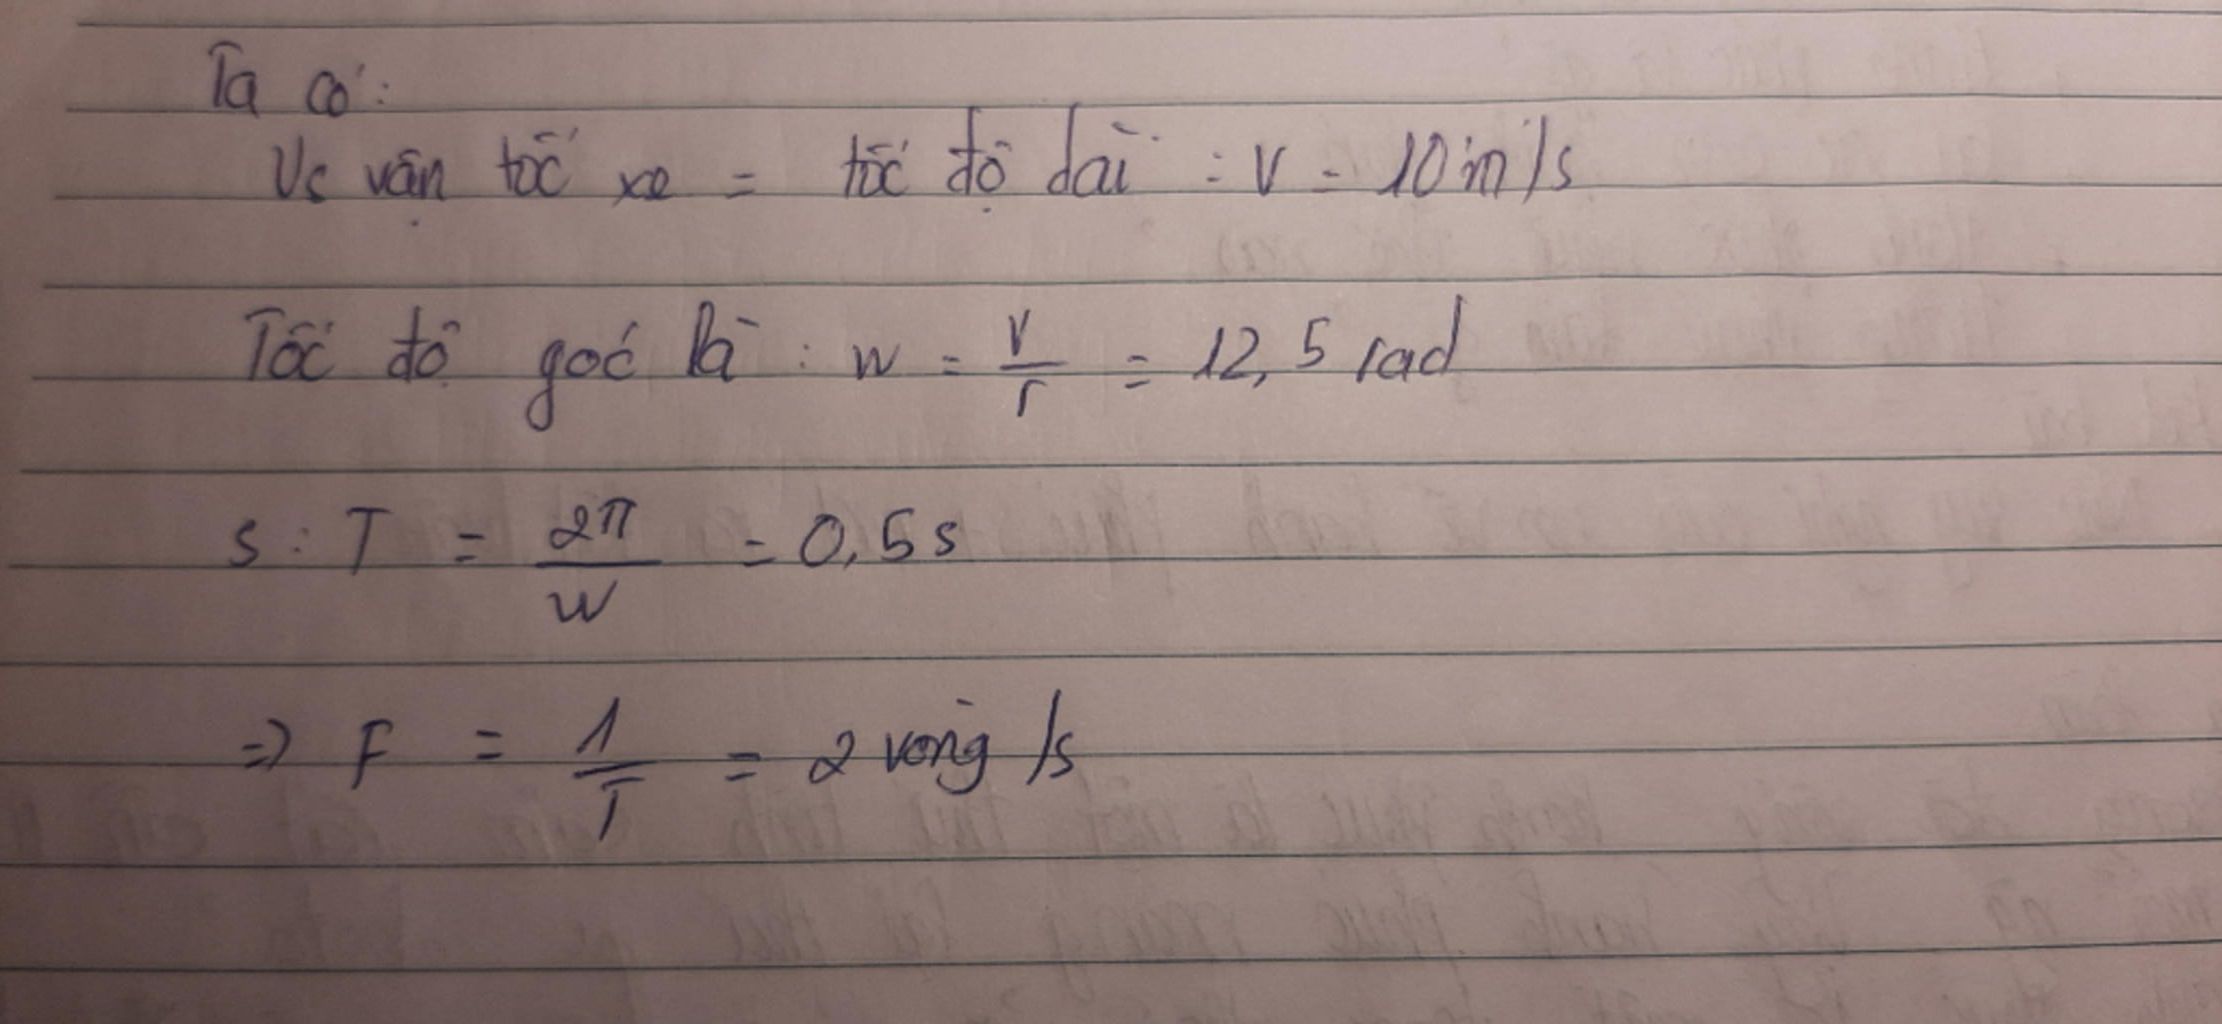 Ta có:
Vs vận tốc xe = tốc độ dài : V = 10 m/s
Tốc độ góc là : w = V/r = 12,5 rad
s : T = 2π/w = 0,5 s
=> F = 1/T = 2 vòng /s